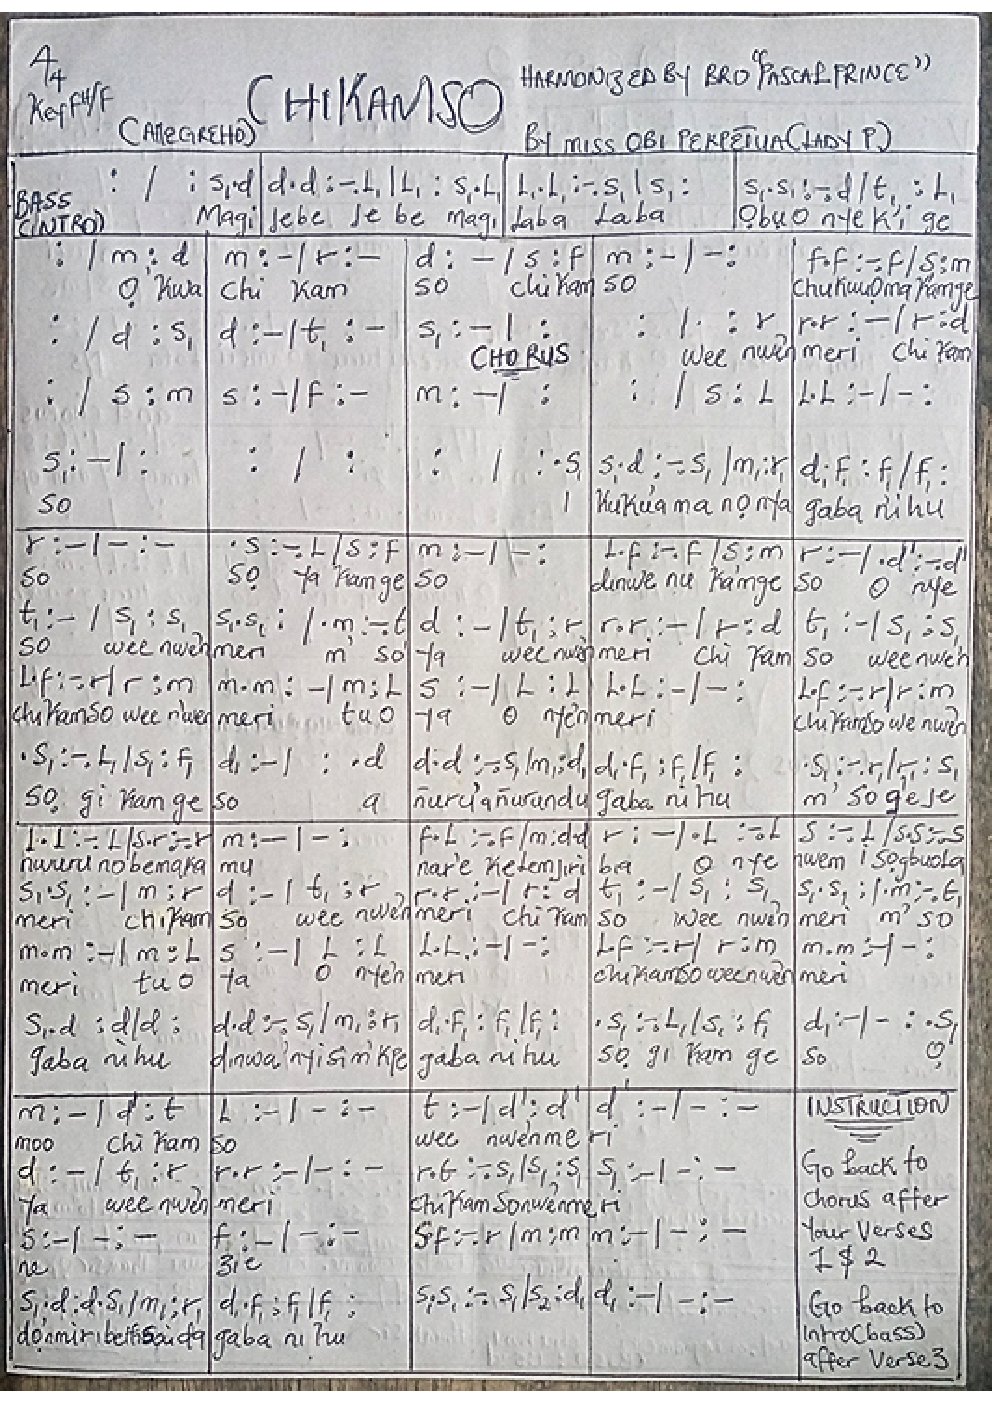 4/4
Key F#/F
(ALLEGRETTO)
CHIKAMSO
HARMONIZED BY BRO "PASCAL PRINCE"
BY MISS OBI PERPETUA (LADY P)
BASS (INTRO)
: / : s₁.d | d.d :-.L₁ | L₁ : s₁.L₁ | L₁.L₁ :-.s₁ | s₁ : | s₁.s₁ :-.d / t₁ : L₁
Magi | Jebe Je be magi | Laba Laba | Ọbụọ nye Ki ge
: / m : d | m : - / r : - | d : - / s : f | m : - / - : | f.f :-.f / s : m
Ọ Kwa | Chi Kam | so chi Kam | so | ChukuụọmaKamge
: / d : s₁ | d : - / t₁ : - | s₁ : - / : | : / . : r | r.r : - / r : d
CHORUS
wee nwèn | meri Chi Kam
: / s : m | s : - / f : - | m : - / : | : / s : L | L.L : - / - :
s₁ : - / : | : / : | : / : .s₁ | s.d :-.s₁ / m₁ : r₁ | d₁.f₁ : f₁ / f₁ :
so | I | KuKuama nọ nya | gaba n'ihu
r : - / - : - | .s :-.L / s : f | m : - / - : | L.f :-.f / s : m | r : - / .d' :-.d'
so | so ya Kamge | so | dinwe nu Kamge | so O nye
t₁ : - / s₁ : s₁ | s₁.s₁ : / .m :-.t | d : - / t₁ : r | r.r : - / r : d | t₁ : - / s₁ : s₁
so wee nwèn | meri m' so | ya wee nwèn | meri Chi Kam | so wee nwèn
L.f :-.r / r : m | m.m : - / m : L | s : - / L : L | L.L : - / - : | L.f :-.r / r : m
chiKamso wee nwèn | meri tu o | ya O nyèn | meri | chiKamso we nwèn
.s₁ :-.L₁ / s₁ : f₁ | d₁ : - / : .d | d.d :-.s₁ / m₁ : d₁ | d₁.f₁ : f₁ / f₁ : | .s₁ :-.r₁ / r₁ : s₁
so gi Kam ge | so a | gaba n'ihu | m' so ge je
L.L :-.L / s.r :-.r | m : - / - : | f.L :-.f / m : d.d | r : - / .L :-.L | s :-.L / s.s :-.s
mu | nar'e Ketemjiri | ba O nye | nwem i sogbuola
s₁.s₁ : - / m : r | d : - / t₁ : r | r.r : - / r : d | t₁ : - / s₁ : s₁ | s₁.s₁ : / .m :-.t₁
meri chi Kam | so wee nwèn | meri chi Kam | so wee nwèn | meri m' so
m.m : - / m : L | s : - / L : L | L.L : - / - : | L.f :-.r / r : m | m.m : - / - :
meri tu o | ya O nyèn | meri | chiKamso weenwèn | meri
s₁.d : d / d : | d.d :-.s₁ / m₁ : r₁ | d₁.f₁ : f₁ / f₁ : | .s₁ :-.L₁ / s₁ : f₁ | d₁ : - / - : .s₁
gaba n'ihu | dinwa'nyisim'Kpe | gaba n'ihu | so gi Kam ge | so Ọ
m : - / d' : t | L : - / - : - | t : - / d' : d' | d' : - / - : -
moo chi Kam | so | wee nwènme | ri
d : - / t₁ : r | r.r : - / - : - | r.t :-.s₁ / s₁ : s₁ | s₁ : - / - : -
ya wee nwèn | meri | chiKamsonwènme | ri
s : - / - : - | f : - / - : - | s.f :-.r / m : m | m : - / - : -
ne | zie
s₁.d : d.s₁ / m₁ : r₁ | d₁.f₁ : f₁ / f₁ : | s₁.s₁ :-.s₁ / s₂ : d₁ | d₁ : - / - : -
gaba n'ihu
INSTRUCTION
Go back to
chorus after
your verses
1 $ 2
Go back to
intro(bass)
after verse 3